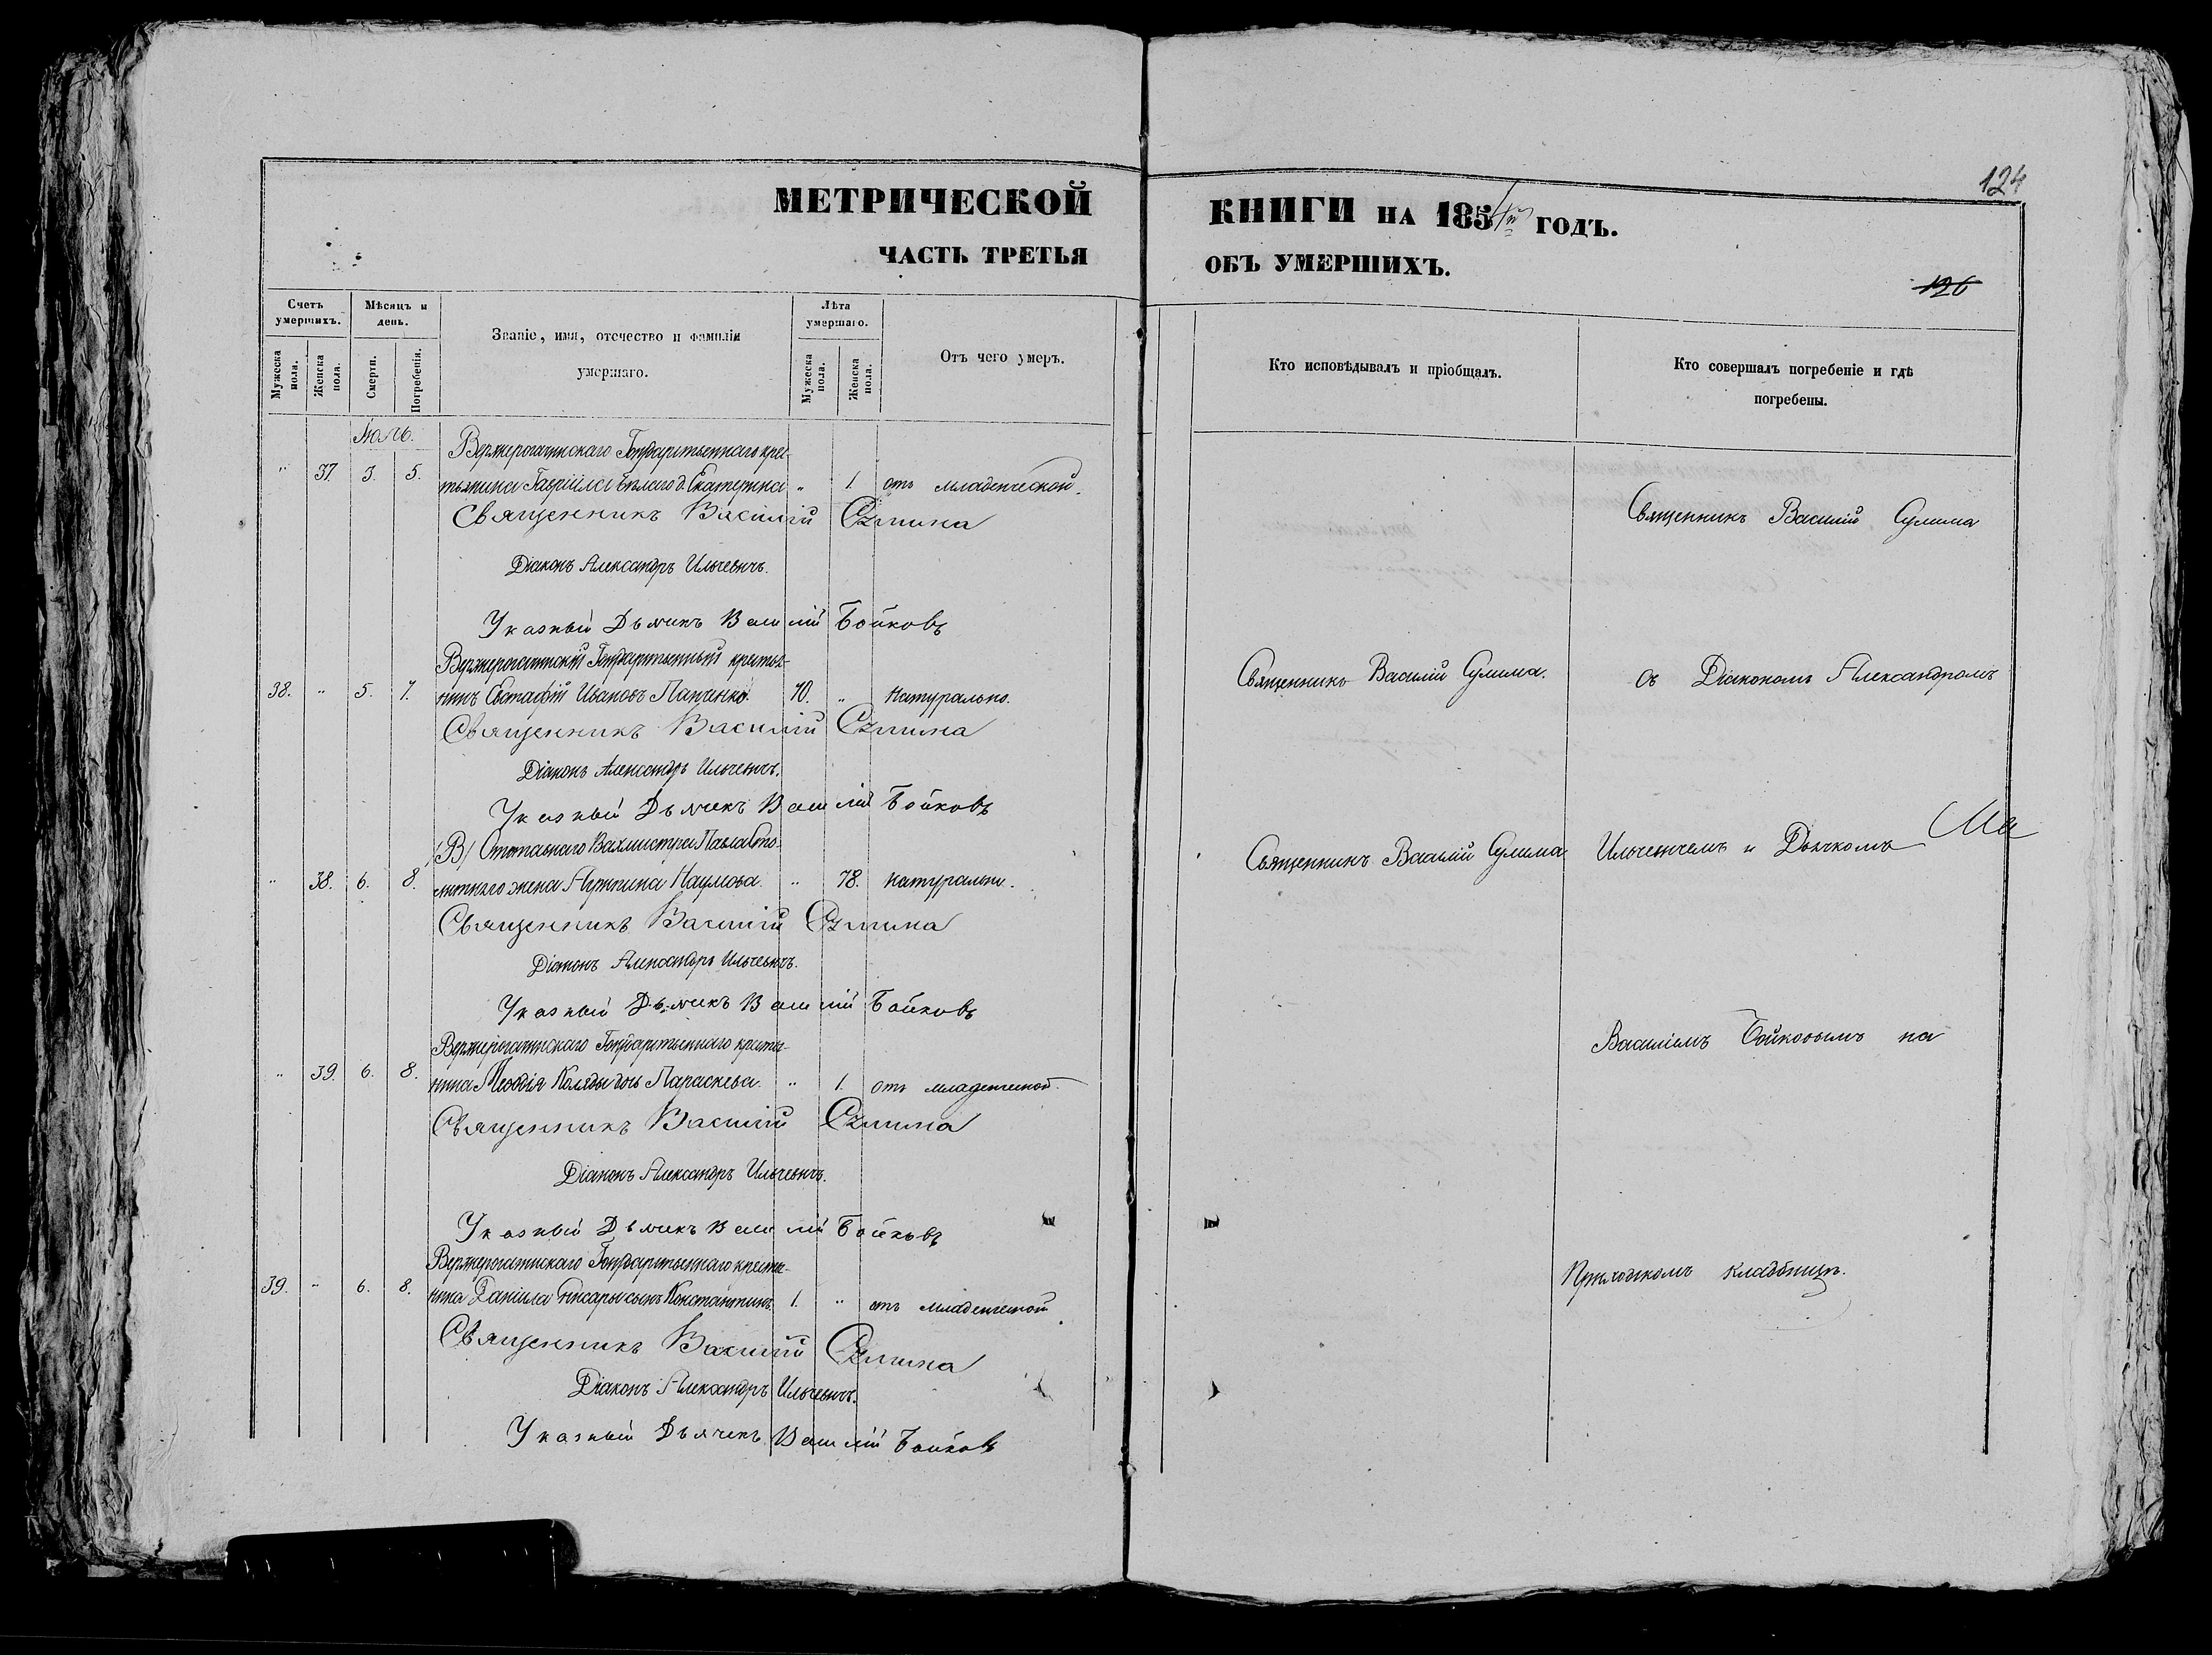 МЕТРИЧЕСКОЙ
ЧАСТЬ ТРЕТЬЯ
Счетъ умершихъ.
Мужеска пола.
Женска пола.
Мѣсяцъ и день.
Смерти.
Погребенія.
Званіе, имя, отечество и фамилія
умершаго.
Лѣта умершаго.
Мужеска пола.
Женска пола.
Отъ чего умеръ.
Іюль.
Верхнерогачинскаго Государственнаго крес-
" 37. 3. 5. тьянина Гавріила Бѣлаго д. Екатерина " 1. отъ младенческой.
Священникъ Василій Сулима
Діаконъ Александръ Ильчевичъ.
Указный Дьячекъ Василій Бойковъ
Верхнерогачинскій Государственный крестья-
38. " 5. 7. нинъ Евстафій Ивановъ Панченко. 70. " натурально.
Священникъ Василій Сулима
Діаконъ Александръ Ильчевичъ.
Указный Дьячекъ Василій Бойковъ
/В/ Отставнаго Вахмистра Павла
" 38. 6. 8. жена Агрипина Наумова. " 78. натурально.
Священникъ Василій Сулима
Діаконъ Александръ Ильчевичъ.
Указный Дьячекъ Василій Бойковъ
Верхнерогачинскаго Государственнаго крестья-
" 39. 6. 8. нина Коляды дочь Параскева. " 1. отъ младенческой.
Священникъ Василій Сулима
Діаконъ Александръ Ильчевичъ.
Указный Дьячекъ Василій Бойковъ
Верхнерогачинскаго Государственнаго крестья-
39. " 6. 8. нина Даніила сынъ Константинъ 1. " отъ младенческой.
Священникъ Василій Сулима
Діаконъ Александръ Ильчевичъ.
Указный Дьячекъ Василій Бойковъ
124
КНИГИ НА 1854й ГОДЪ.
ОБЪ УМЕРШИХЪ.
126
Кто исповѣдывалъ и пріобщалъ.
Кто совершалъ погребеніе и гдѣ
погребены.
Священникъ Василій Сулима
Священникъ Василій Сулима. съ Діакономъ Александромъ
Священникъ Василій Сулима Ильчевичемъ и Дьячкомъ
Василіемъ Бойковымъ на
Приходскомъ кладбищѣ.